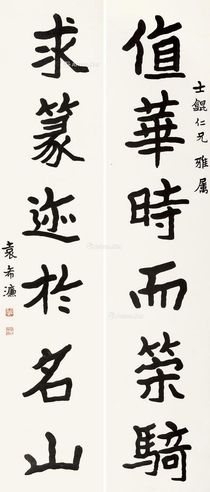 士錕仁兄 雅属
值華時而策騎
求篆迹於名山
袁希濂